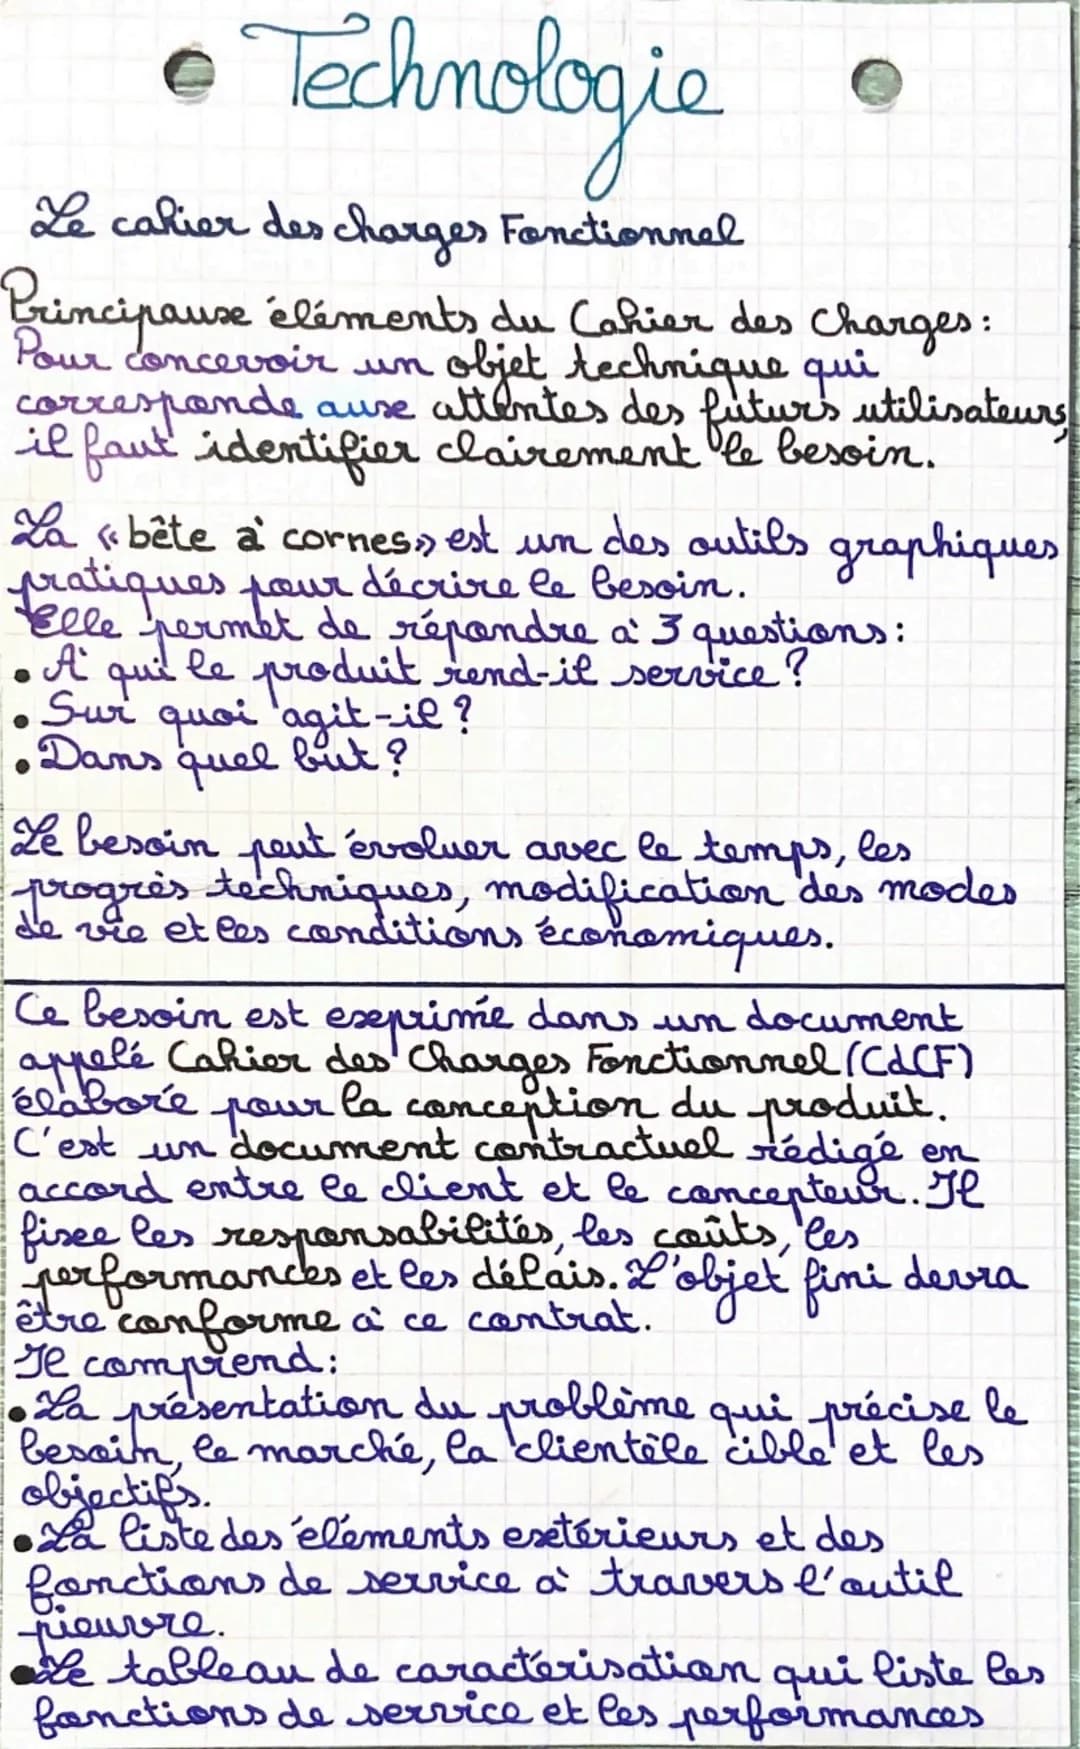 Technologie
Le cahier des charges Fonctionnel
Principaux éléments du Cahier des Charges:
Pour concevoir un objet technique qui
corresponde aux attentes des futurs utilisateurs,
il faut identifier clairement le besoin.
La « bête à cornes » est un des outils graphiques
pratiques pour décrire le besoin.
Elle permet de répondre à 3 questions:
• À qui le produit rend-il service?
• Sur quoi agit-il?
• Dans quel but?
Le besoin peut évoluer avec le temps, les
progrès techniques, modification des modes
de vie et les conditions économiques.
Ce besoin est exprimé dans un document
appelé Cahier des Charges Fonctionnel (CdCF)
élaboré pour la conception du produit.
C'est un document contractuel rédigé en
accord entre le client et le concepteur. Il
fixe les responsabilités, les coûts, les
performances et les délais. L'objet fini devra
être conforme à ce contrat.
Il comprend:
• La présentation du problème qui précise le
besoin, le marché, la clientèle cible et les
objectifs.
• La liste des éléments extérieurs et des
fonctions de service à travers l'outil
pieuvre.
• Le tableau de caractérisation qui liste les
fonctions de service et les performances